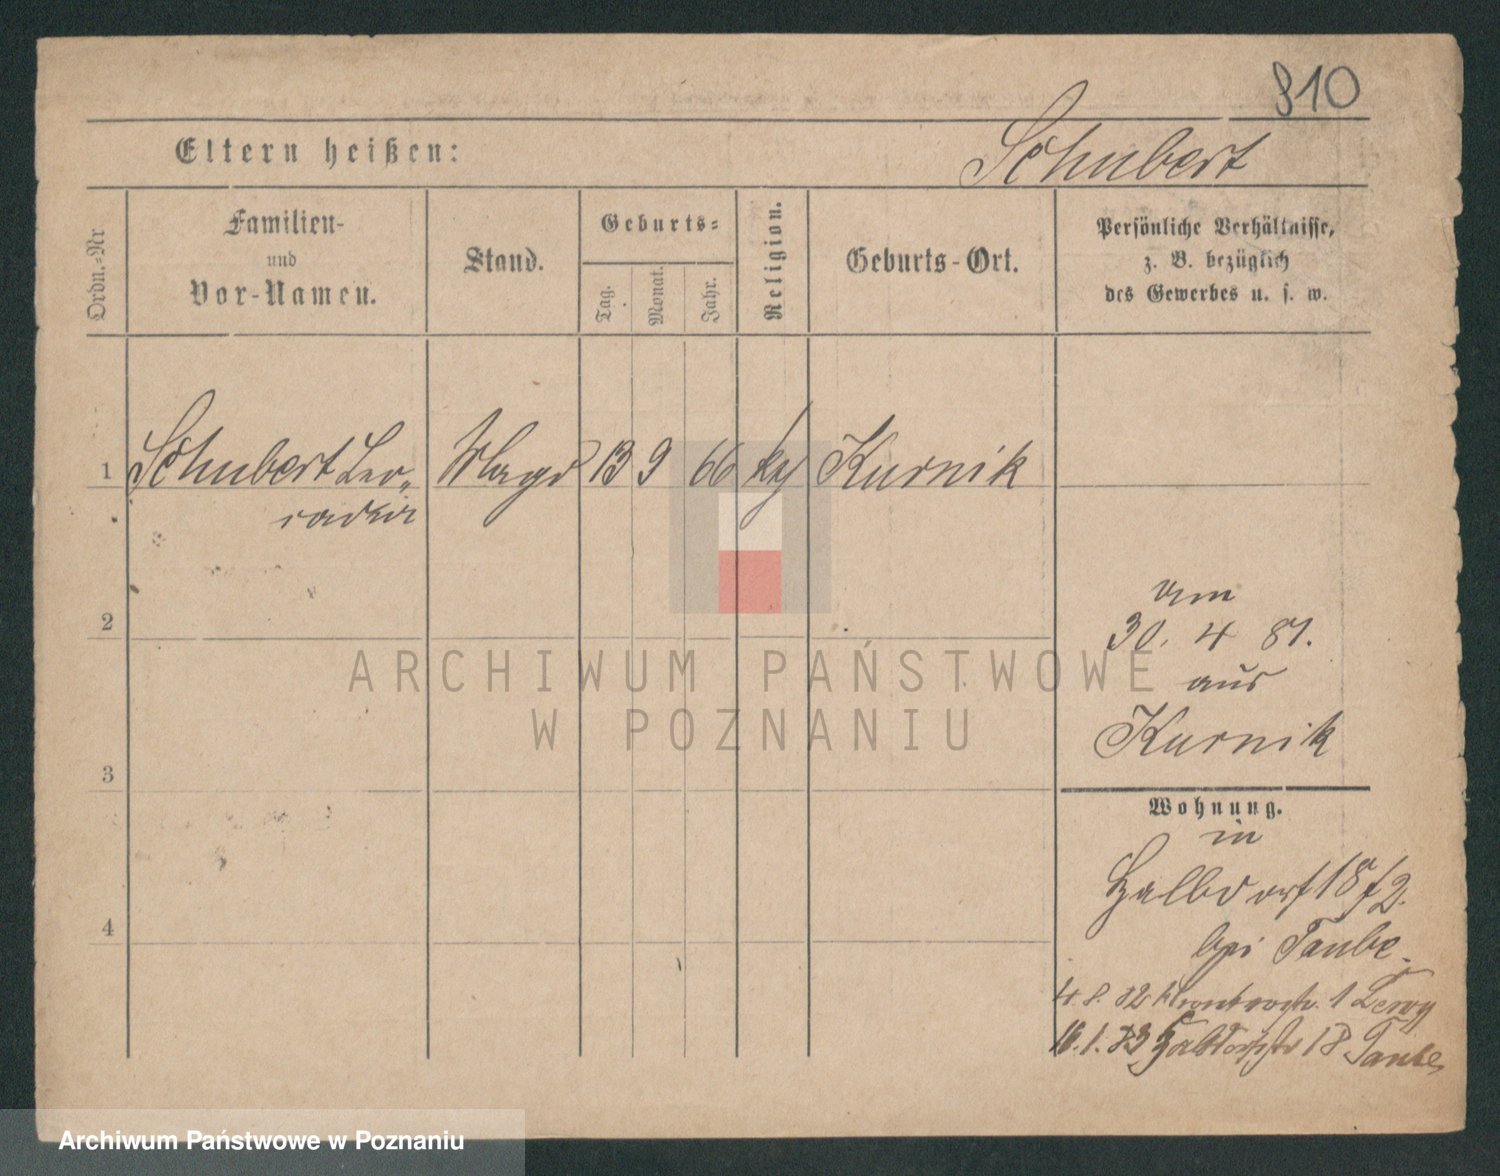 910
Eltern heißen:
Schubert
Ordn.-Nr
Familien-
und
Vor-Namen.
Stand.
Geburts-
Tag.
Monat.
Jahr.
Religion.
Geburts-Ort.
Persönliche Verhältnisse,
z. B. bezüglich
des Gewerbes u. s. w.
1 Schubert Leo- Magd 13 9 66 Kurnik
cadia
2
3
4
am
30. 4 81.
aus
Kurnik
Wohnung.
in
Halbdorf 18/2.
bei Taube.
4. 8. 82 1
16. 1. 83 Halbdorfstr 18 Taube
ARCHIWUM PAŃSTWOWE
W POZNANIU
Archiwum Państwowe w Poznaniu